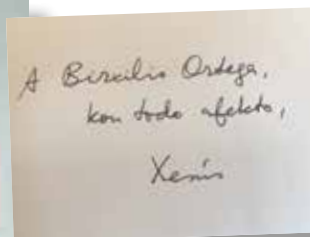 A Birxilio Ortega,
kon todo afekto,
Xesús